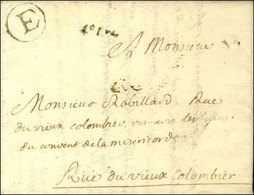 E
A Monsieur
Monsieur Robillard, Rue
du vieux colombier, vis-avis les filles
du couvent de la misericorde
Rue du vieux Colombier